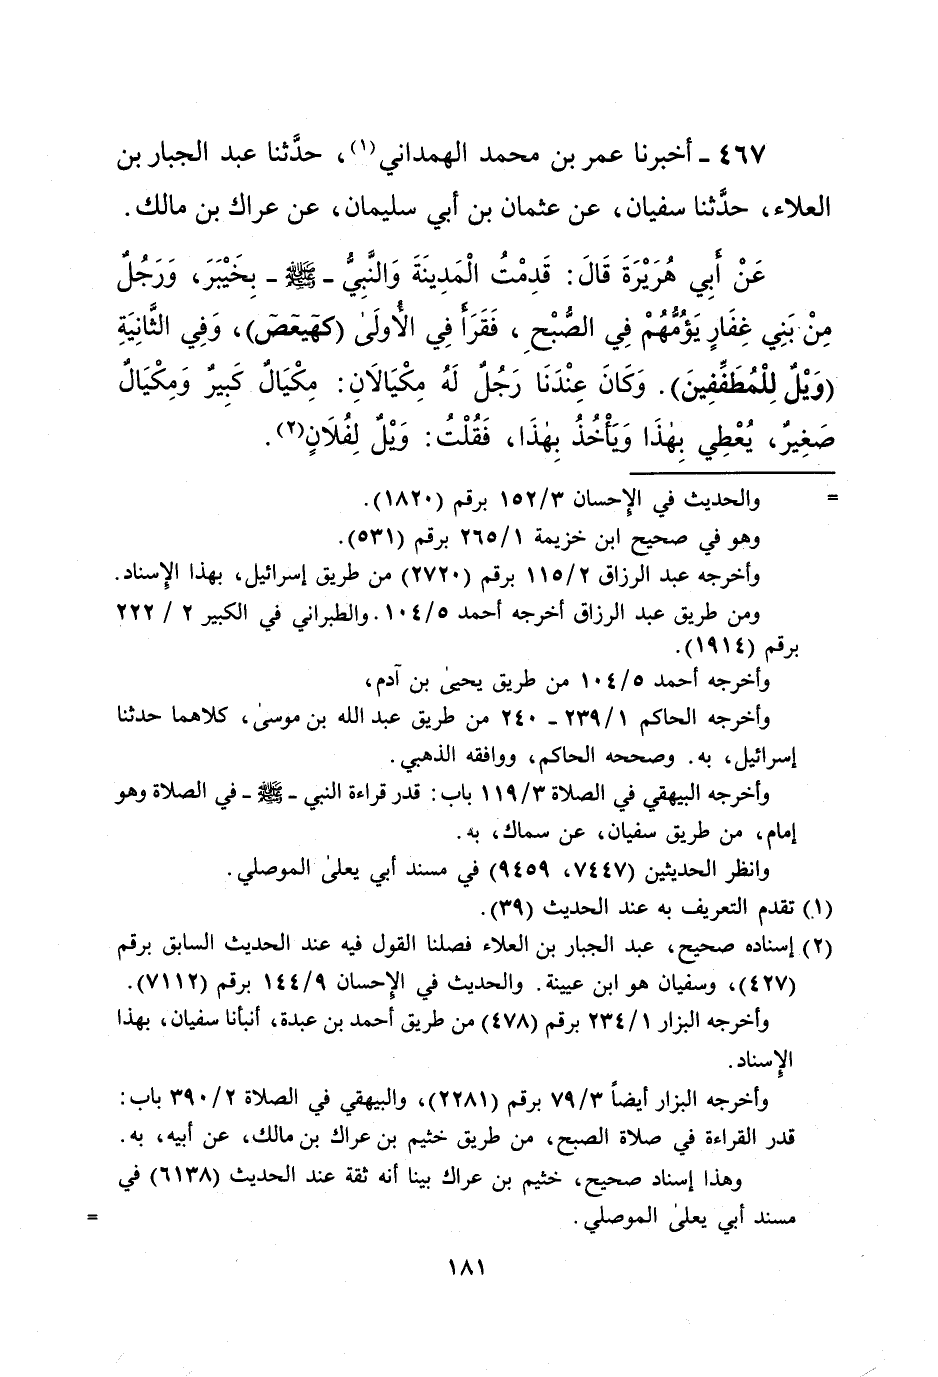 ٤٦٧ ـ أخبرنا عمر بن محمد الهمداني(١)، حدَّثنا عبد الجبار بن
العلاء، حدَّثنا سفيان، عن عثمان بن أبي سليمان، عن عراك بن مالك.
عَنْ أَبِي هُرَيْرَةَ قَالَ: قَدِمْتُ الْمَدِينَةَ وَالنَّبِيُّ ـ ﷺ ـ بِخَيْبَرَ، وَرَجُلٌ
مِنْ بَنِي غِفَارٍ يَؤُمُّهُمْ فِي الصُّبْحِ، فَقَرَأَ فِي الْأُولَىٰ (كۤهٰيٰعۤصۤ)، وَفِي الثَّانِيَةِ
(وَيْلٌ لِلْمُطَفِّفِينَ). وَكَانَ عِنْدَنَا رَجُلٌ لَهُ مِكْيَالَانِ: مِكْيَالٌ كَبِيرٌ وَمِكْيَالٌ
صَغِيرٌ، يُعْطِي بِهٰذَا وَيَأْخُذُ بِهٰذَا، فَقُلْتُ: وَيْلٌ لِفُلَانٍ(٢).
= والحديث في الإحسان ١٥٢/٣ برقم (١٨٢٠).
وهو في صحيح ابن خزيمة ٢٦٥/١ برقم (٥٣١).
وأخرجه عبد الرزاق ١١٥/٢ برقم (٢٧٢٠) من طريق إسرائيل، بهذا الإسناد.
ومن طريق عبد الرزاق أخرجه أحمد ١٠٤/٥. والطبراني في الكبير ٢ / ٢٢٢
برقم (١٩١٤).
وأخرجه أحمد ١٠٤/٥ من طريق يحيىٰ بن آدم،
وأخرجه الحاكم ٢٣٩/١ ـ ٢٤٠ من طريق عبد الله بن موسىٰ، كلاهما حدثنا
إسرائيل، به. وصححه الحاكم، ووافقه الذهبي.
وأخرجه البيهقي في الصلاة ١١٩/٣ باب: قدر قراءة النبي ـ ﷺ ـ في الصلاة وهو
إمام، من طريق سفيان، عن سماك، به.
وانظر الحديثين (٧٤٤٧، ٩٤٥٩) في مسند أبي يعلىٰ الموصلي.
(١) تقدم التعريف به عند الحديث (٣٩).
(٢) إسناده صحيح، عبد الجبار بن العلاء فصلنا القول فيه عند الحديث السابق برقم
(٤٢٧)، وسفيان هو ابن عيينة. والحديث في الإحسان ١٤٤/٩ برقم (٧١١٢).
وأخرجه البزار ٢٣٤/١ برقم (٤٧٨) من طريق أحمد بن عبدة، أنبأنا سفيان، بهذا
الإسناد.
وأخرجه البزار أيضاً ٧٩/٣ برقم (٢٢٨١)، والبيهقي في الصلاة ٣٩٠/٢ باب:
قدر القراءة في صلاة الصبح، من طريق خثيم بن عراك بن مالك، عن أبيه، به.
وهذا إسناد صحيح، خثيم بن عراك بينا أنه ثقة عند الحديث (٦١٣٨) في
مسند أبي يعلىٰ الموصلي. =
١٨١